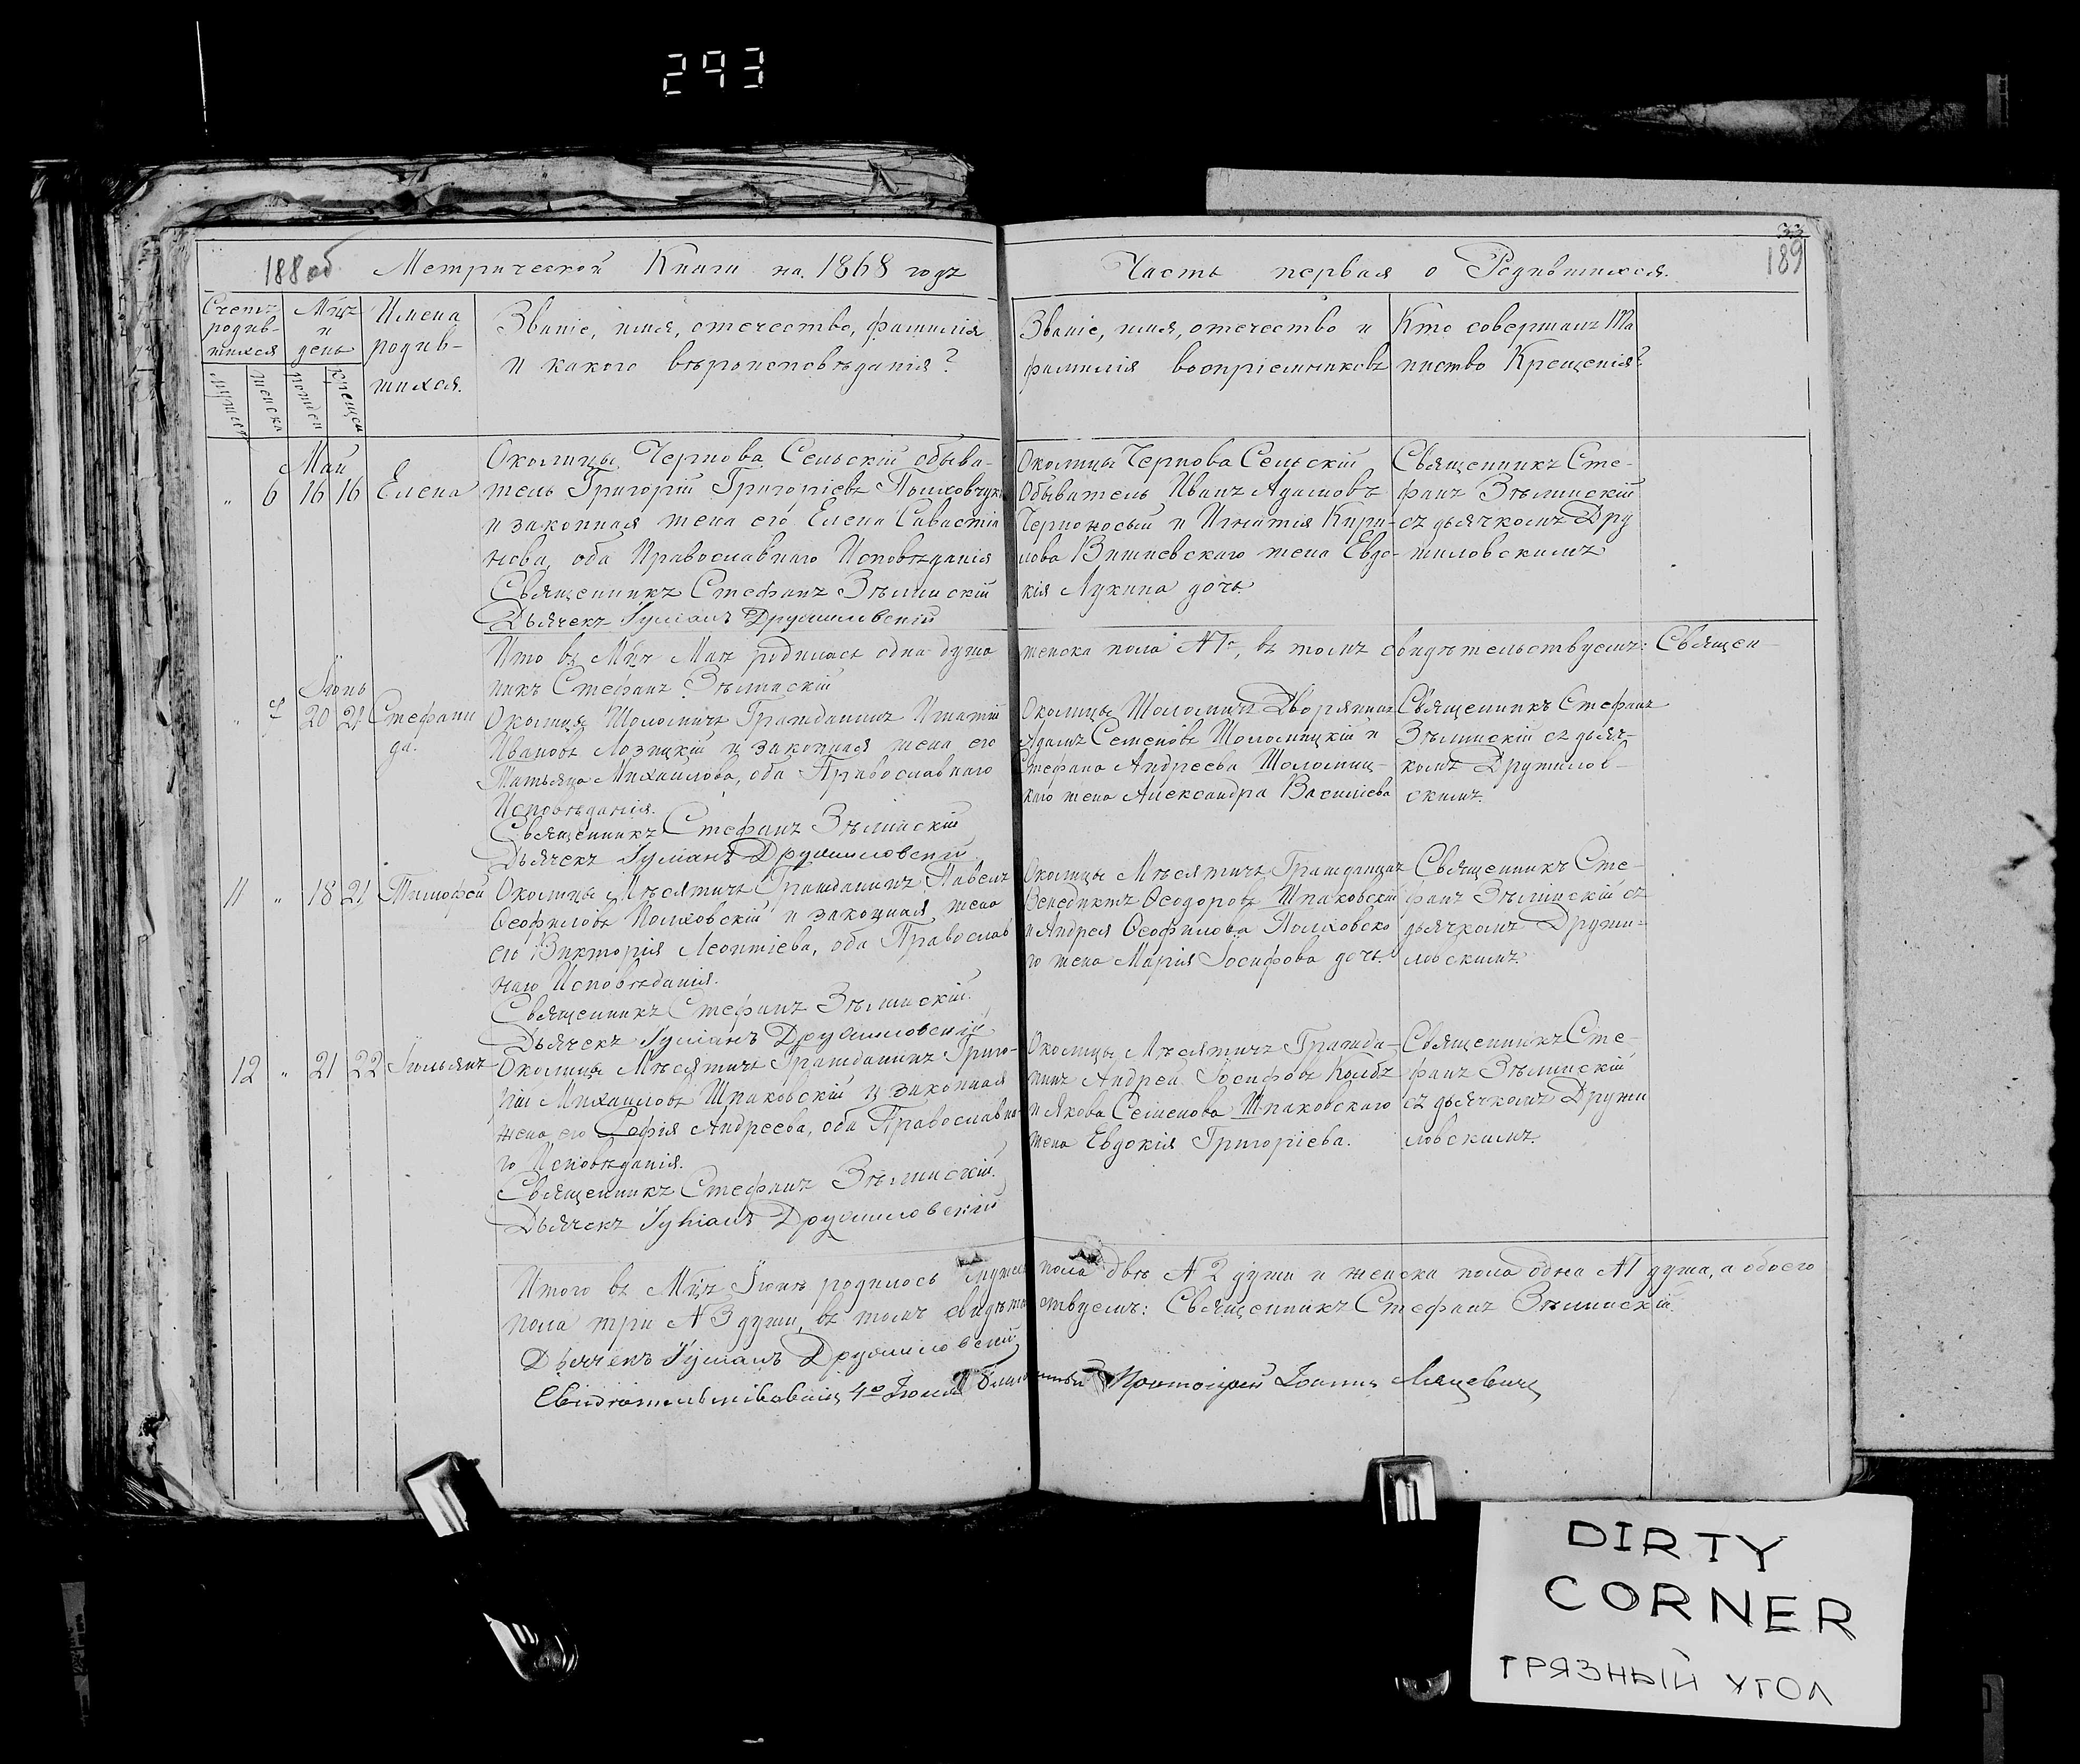 293
188 об
Метрической Книги на 1868 годъ
Часть первая о Родившихся.
33
189
Счетъ родив-
шихся
Мцъ
и
день
Имена
родив-
шихся.
Званіе, имя, отечество, фамилія
и какого вѣроисповѣданія?
Званіе, имя, отечество и
фамилія воспріемниковъ
Кто совершалъ Та
инство Крещенія?
Май
" 6 16 16 Елена
Околицы Чернова Сельскій обыва-
тель Григорій Григоріевъ
и законная жена его Елена Савастія
нова, оба Православнаго Исповѣданія
Священникъ Стефанъ Зѣлинскій
Дьячекъ Іуліанъ Дружиловскій
Околицы Чернова Сельскій
Обыватель Иванъ Адамовъ
Черноносый и Игнатія Кири-
лова Вишневскаго жена Евдо-
кія Лукина дочь
Священникъ Сте-
фанъ Зѣлинскій
съ дьячкомъ Дру
жиловскимъ
Что въ Мцѣ Маѣ родилась одна душа женска пола №1, въ томъ свидѣтельствуемъ: Священ
никъ Стефанъ Зѣлинскій
Іюнь
20 21 Стефани
да.
Околицы Шоломичъ Гражданинъ Игнатій
Ивановъ Лозицкій и законная жена его
Татьяна Михаилова, оба Православнаго
Исповѣданія.
Священникъ Стефанъ Зѣлинскій
Дьячекъ Іуліанъ Дружиловскій
Околицы Шоломичъ Дворянинъ
Адамъ Семеновъ Шоломицкій и
Стефана Андреева Шоломиц-
каго жена Александра Василіева
Священникъ Стефанъ
Зѣлинскій съ дьяч-
комъ Дружилов-
скимъ.
11 " 18 21 Тимофей
Околицы Мѣсятичъ Гражданинъ Павелъ
Ѳеофиловъ Полховскій и законная жена
его Викторія Леонтіева, оба Православ
наго Исповѣданія.
Священникъ Стефанъ Зѣлинскій.
Дьячекъ Іуліанъ Дружиловскій
Околицы Мѣсятичъ Гражданинъ
Венедиктъ Ѳеодоровъ Шпаковскій
и Андрея Ѳеофилова Полховско
го жена Марія Іосифова дочь.
Священникъ Сте-
фанъ Зѣлинскій съ
дьячкомъ Дружи-
ловскимъ.
12 " 21 22 Іюльянъ
Околицы Мѣсятичъ Гражданинъ Григо-
рій Михаиловъ Шпаковскій и законная
жена его Софія Андреева, оба Православна
го Исповѣданія.
Священникъ Стефанъ Зѣлинскій.
Дьячекъ Іуліанъ Дружиловскій
Околицы Мѣсятичъ Гражда-
нинъ Андрей Іосифовъ Колбъ
и Якова Семенова Шпаковскаго
жена Евдокія Григоріева.
Священникъ Сте-
фанъ Зѣлинскій
съ дьячкомъ Дружи
ловскимъ.
Итого въ Мцѣ Іюнѣ родилось мужеска пола двѣ №2 души и женска пола одна №1 душа, а обоего
пола три №3 души, въ томъ свидѣтельствуемъ: Священникъ Стефанъ Зѣлинскій.
Дьячекъ Іуліанъ Дружиловскій
Свидѣтельствовалъ 4го Іюля Благочинный Протоіерей Іоаннъ
DIRTY
CORNER
ГРЯЗНЫЙ УГОЛ